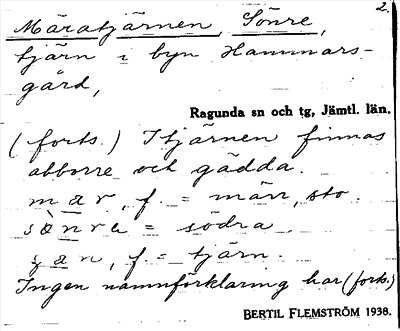 2.
Märatjärnen, Sönre,
tjärn i byn Hammars-
gård,
Ragunda sn och tg, Jämtl. län.
(forts.) I tjärnen finnas
abborre och gädda.
mar, f. = märr, sto.
sànra = södra
ʒan, f. = tjärn.
Ingen namnförklaring har (forts.)
BERTIL FLEMSTRÖM 1938.